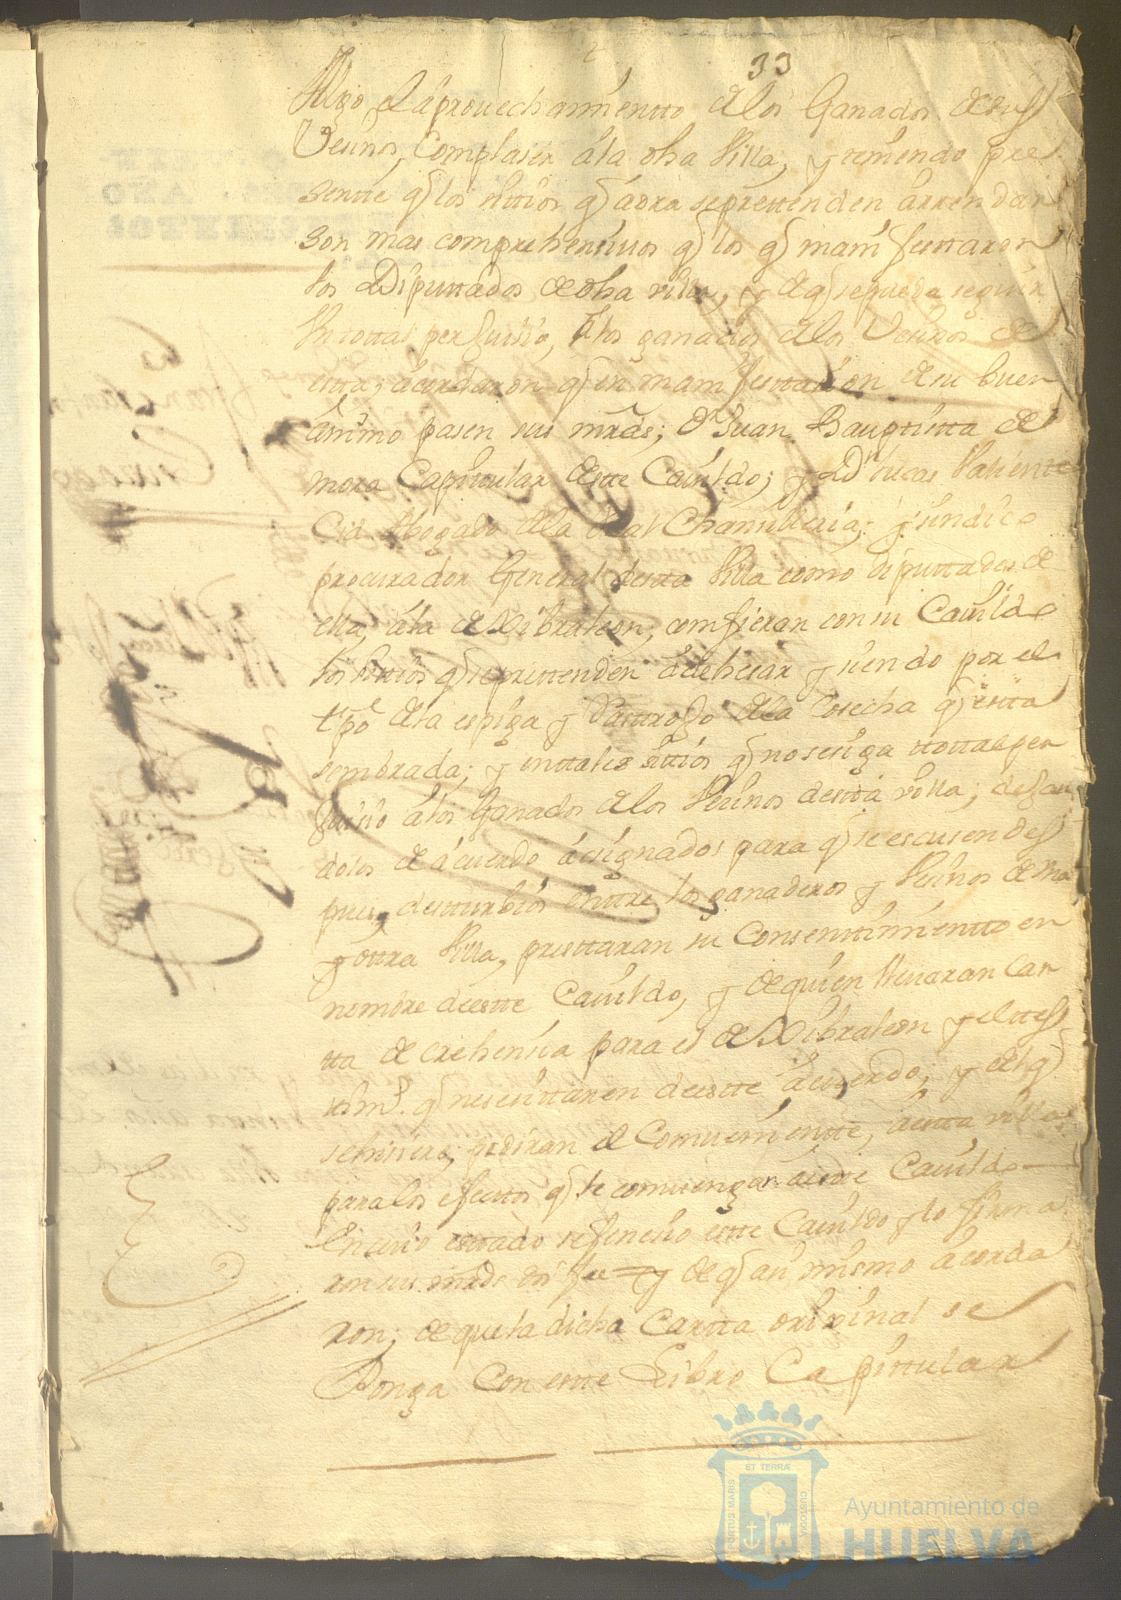 33
Algo, el aprouechamientto de los Ganados de sus
Vesinos, Complaser a la dha Villa, y teniendo pre
sentte q los sittios q aora se prettenden arrendar
son mas comprehensiuos q los q manifesttaron
los Diputtados de dha villa, y de q se pueda seguir
total perJuisio, a los ganados de los Vesinos de
estta; acordaron q en manifesttasion de su buen
animo pasen sus mrds; Dn Juan Bauptistta de
mora Capittular deste Cauildo; y Ld Lucas Valientte
Cid Abogado de la Real Chansilleria; y sindico
procurador General destta Villa como diputtados de
ella, a la de Gibraleon, comfieran con su Cauildo
los sittios q se prettenden adehesar y siendo por el
tpo de la espiga y Pasttoço de la Cosecha q estta
sembrada; y en tales sittios q no se siga ttotal per
Juisio a los Ganados de los Vesinos destta villa; dejan
dolos de acuerdo asignados para q se escusen des
pues, destturbios enttre los ganaderos y Vesinos de una
y ottra Villa, presttaran su Consenttimientto en
nombre deestte Cauildo, y de quien lleuaran Car
tta de crehensia para el de Gibraleon y el ttes
ttimo. q nesesittaren deestte acuerdo; y de lo q
se hisiere, pediran el Comuenientte, a estta villa
para los efecttos q le comuengan a estte Cauildo
En cuio esttado se fenesio estte Cauildo y lo firma
ron sus mrds doi fee = y de q asi mismo acorda
ron; de que la dicha Cartta original se
Ponga Con estte Libro Capittular
PORTUS MARIS ET TERRÆ CUSTODIA
Ayuntamiento de
HUELVA